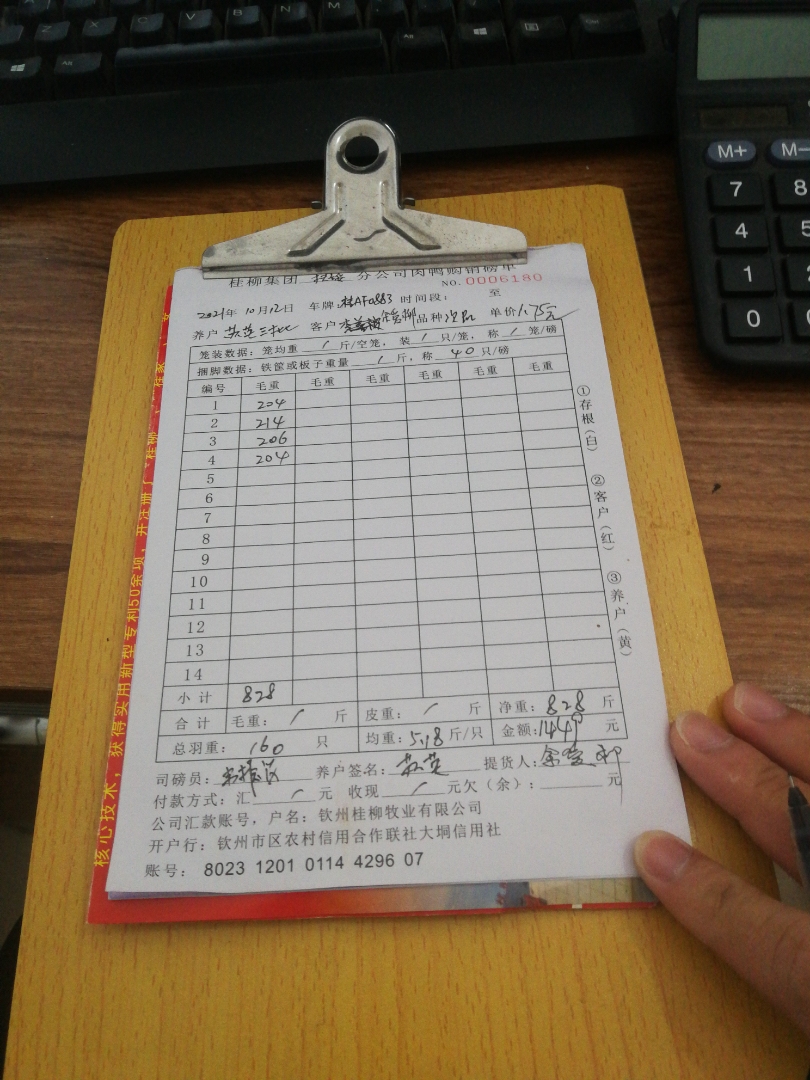 桂柳集团 分公司肉鸭购销磅单
NO. 0006180
2021年 10月12日 车牌:桂AF0883 时间段: 至
养户 客户 品种 单价1.75元
笼装数据:笼均重 / 斤/空笼,装 / 只/笼,称 / 笼/磅
捆脚数据:铁筐或板子重量 / 斤,称 40 只/磅
编号 毛重 毛重 毛重 毛重 毛重 毛重
1 204
2 214
3 206
4 204
5
6
7
8
9
10
11
12
13
14
小计 828
合计 毛重: / 斤 皮重: / 斤 净重: 828 斤
总羽重: 160 只 均重: 5.18 斤/只 金额: 1449 元
司磅员: 养户签名: 提货人:
付款方式:汇 / 元 收现 / 元欠(余): 元
公司汇款账号,户名:钦州桂柳牧业有限公司
开户行:钦州市区农村信用合作联社大垌信用社
账号: 8023 1201 0114 4296 07
①存根(白)
②客户(红)
③养户(黄)
核心技术,获得实用新型专利50余项,开注册了"桂柳
M+ M-
7 8
4 5
1 2
0
X C V B N M
Alt